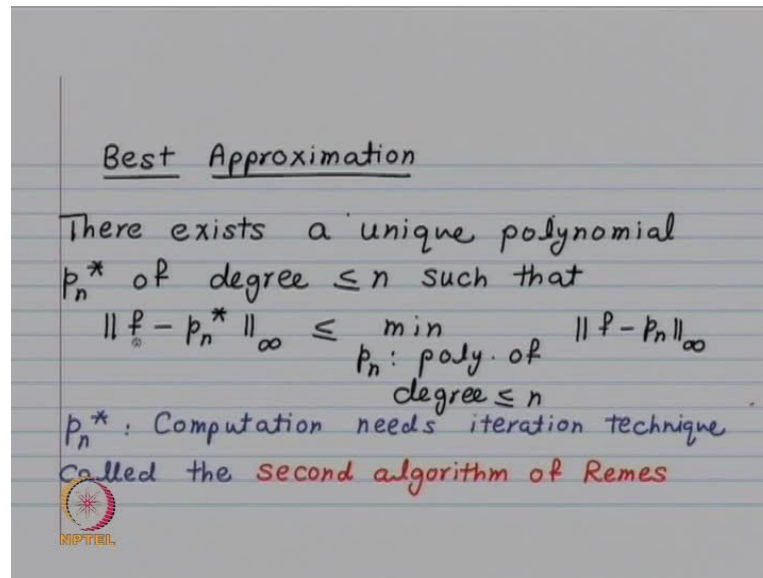 Best Approximation
There exists a unique polynomial
pn* of degree ≤ n such that
‖ f - pn* ‖∞ ≤ min ‖ f - pn ‖∞
pn : poly. of
degree ≤ n
pn* : Computation needs iteration technique
called the second algorithm of Remes
NPTEL